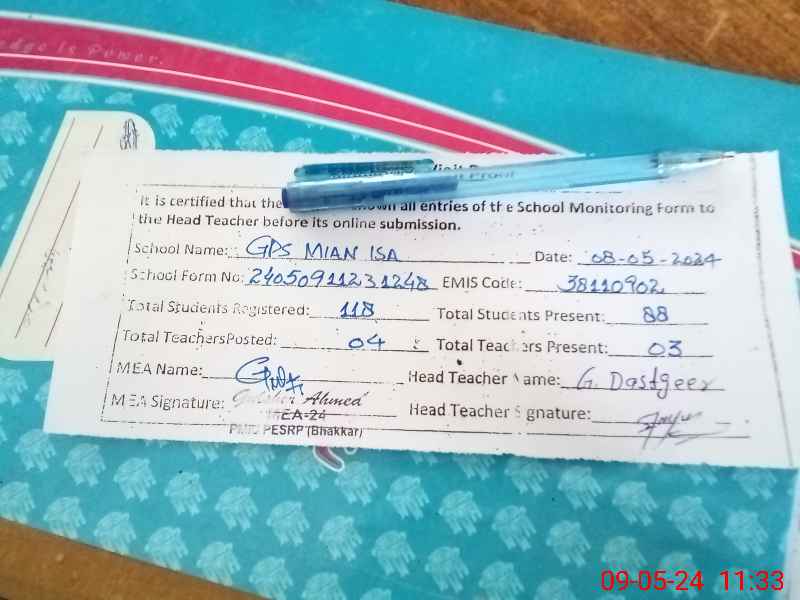 edge is Power.
It is certified that the all entries of the School Monitoring Form to
the Head Teacher before its online submission.
School Name: GPS MIAN ISA Date: 08-05-2024
School Form No: 2405091123.1248 EMIS Code: 38110902
Total Students Registered: 118 Total Students Present: 88
Total TeachersPosted: 04 Total Teachers Present: 03
MEA Name: Head Teacher Name: G. Dastgeer
MEA Signature: Ahmed Head Teacher Signature:
MEA-24
PMIU PESRP (Bhakkar)
09-05-24 11:33